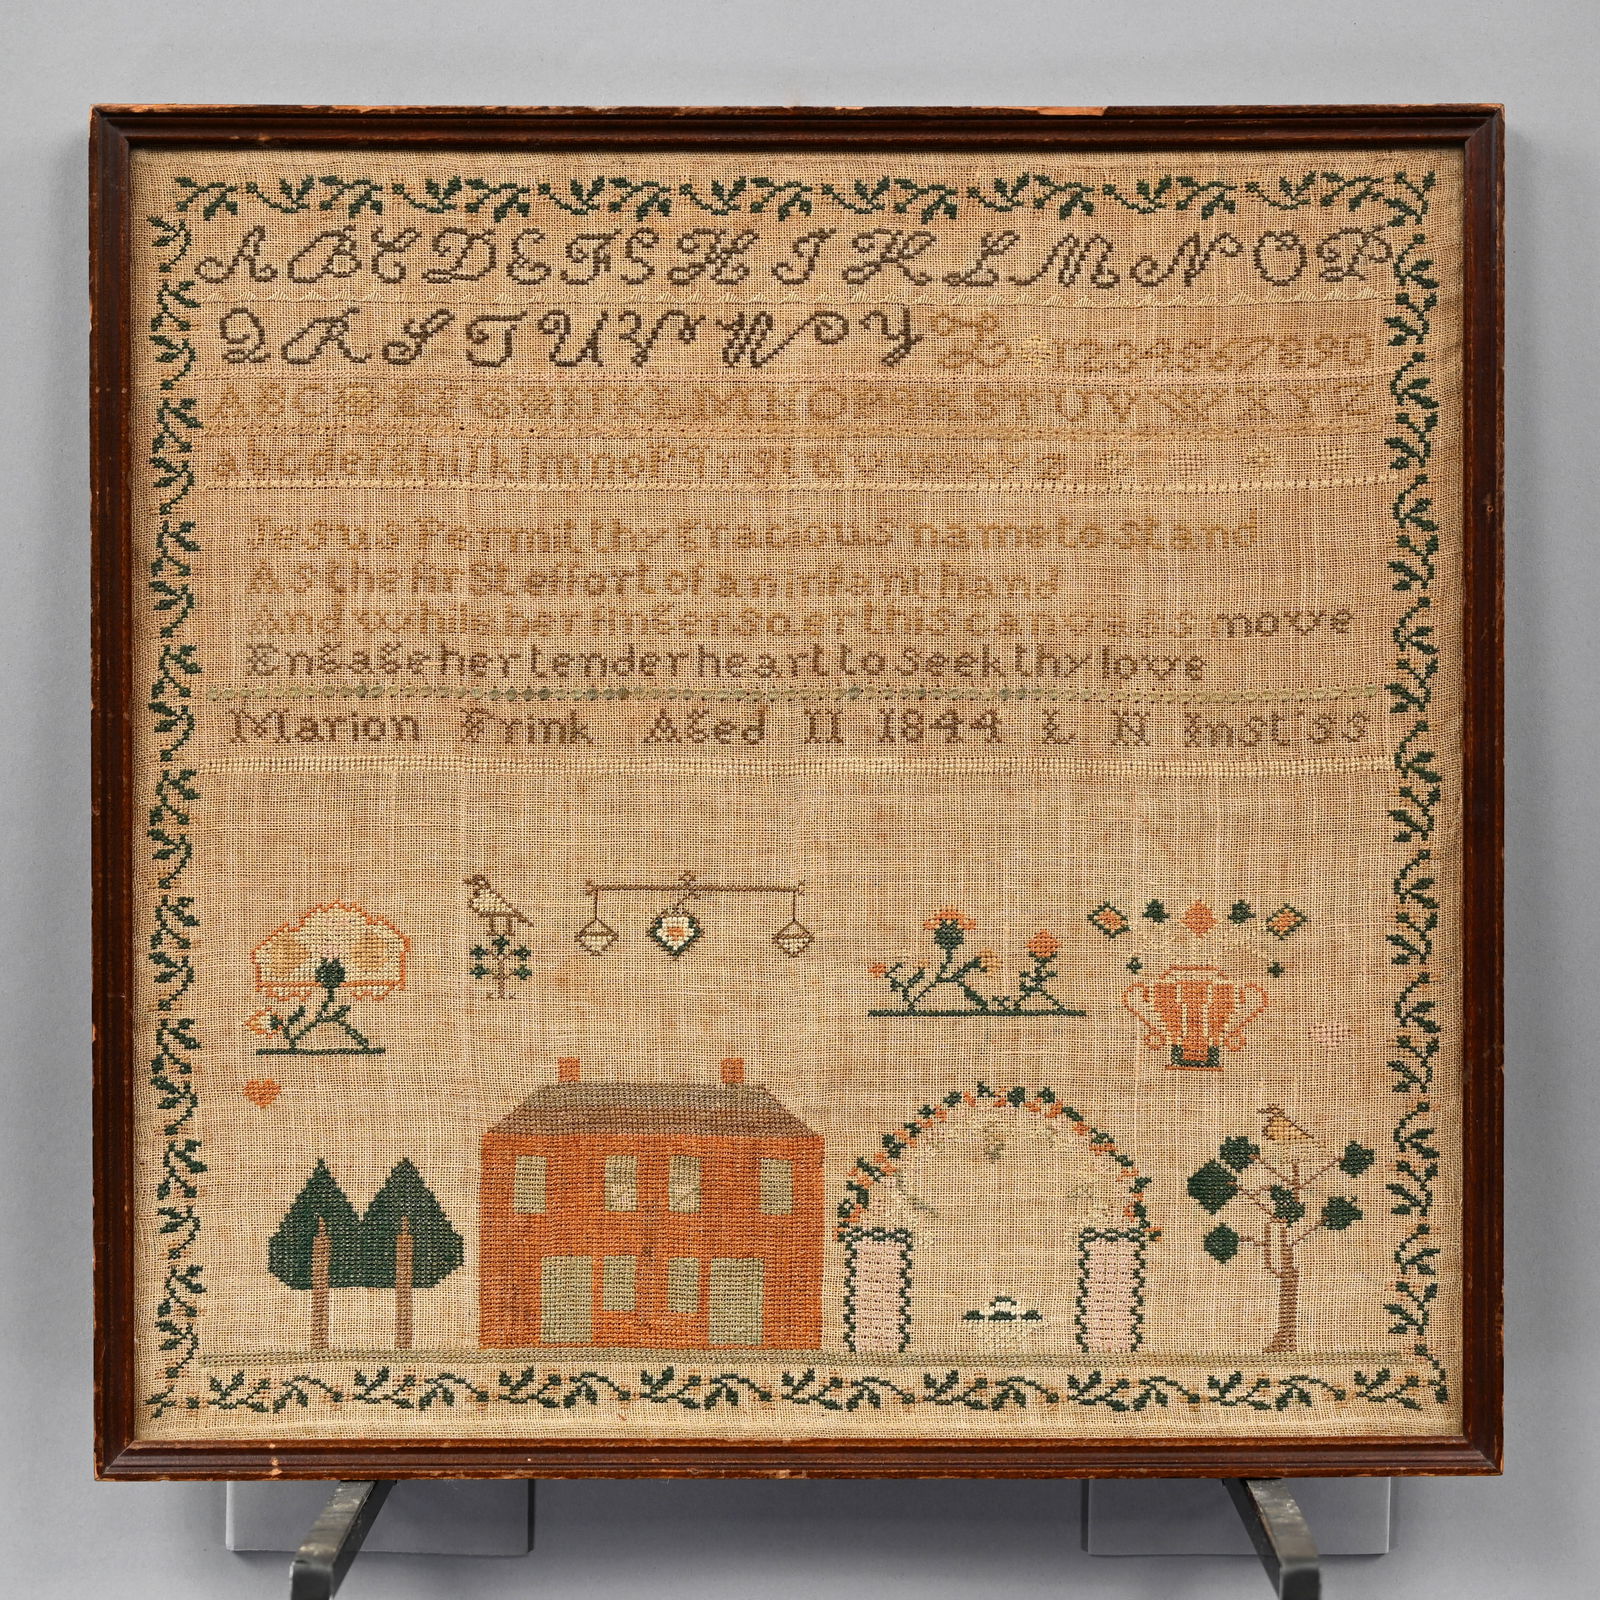 A B C D E F G H I K L M N O P
Q R S T U V W X Y Z 1 2 3 4 5 6 7 8 9 0
A B C D E F G H I J K L M N O P Q R S T U V W X Y Z
a b c d e f g h i j k l m n o p q r s t u v w x y z
Jesus Permit thy Gracious name to stand
As the first effort of an infant hand
And while her fingers oer this canvass move
Engage her tender heart to seek thy love
Marion Frink Aged 11 1844 L N Inst'ss